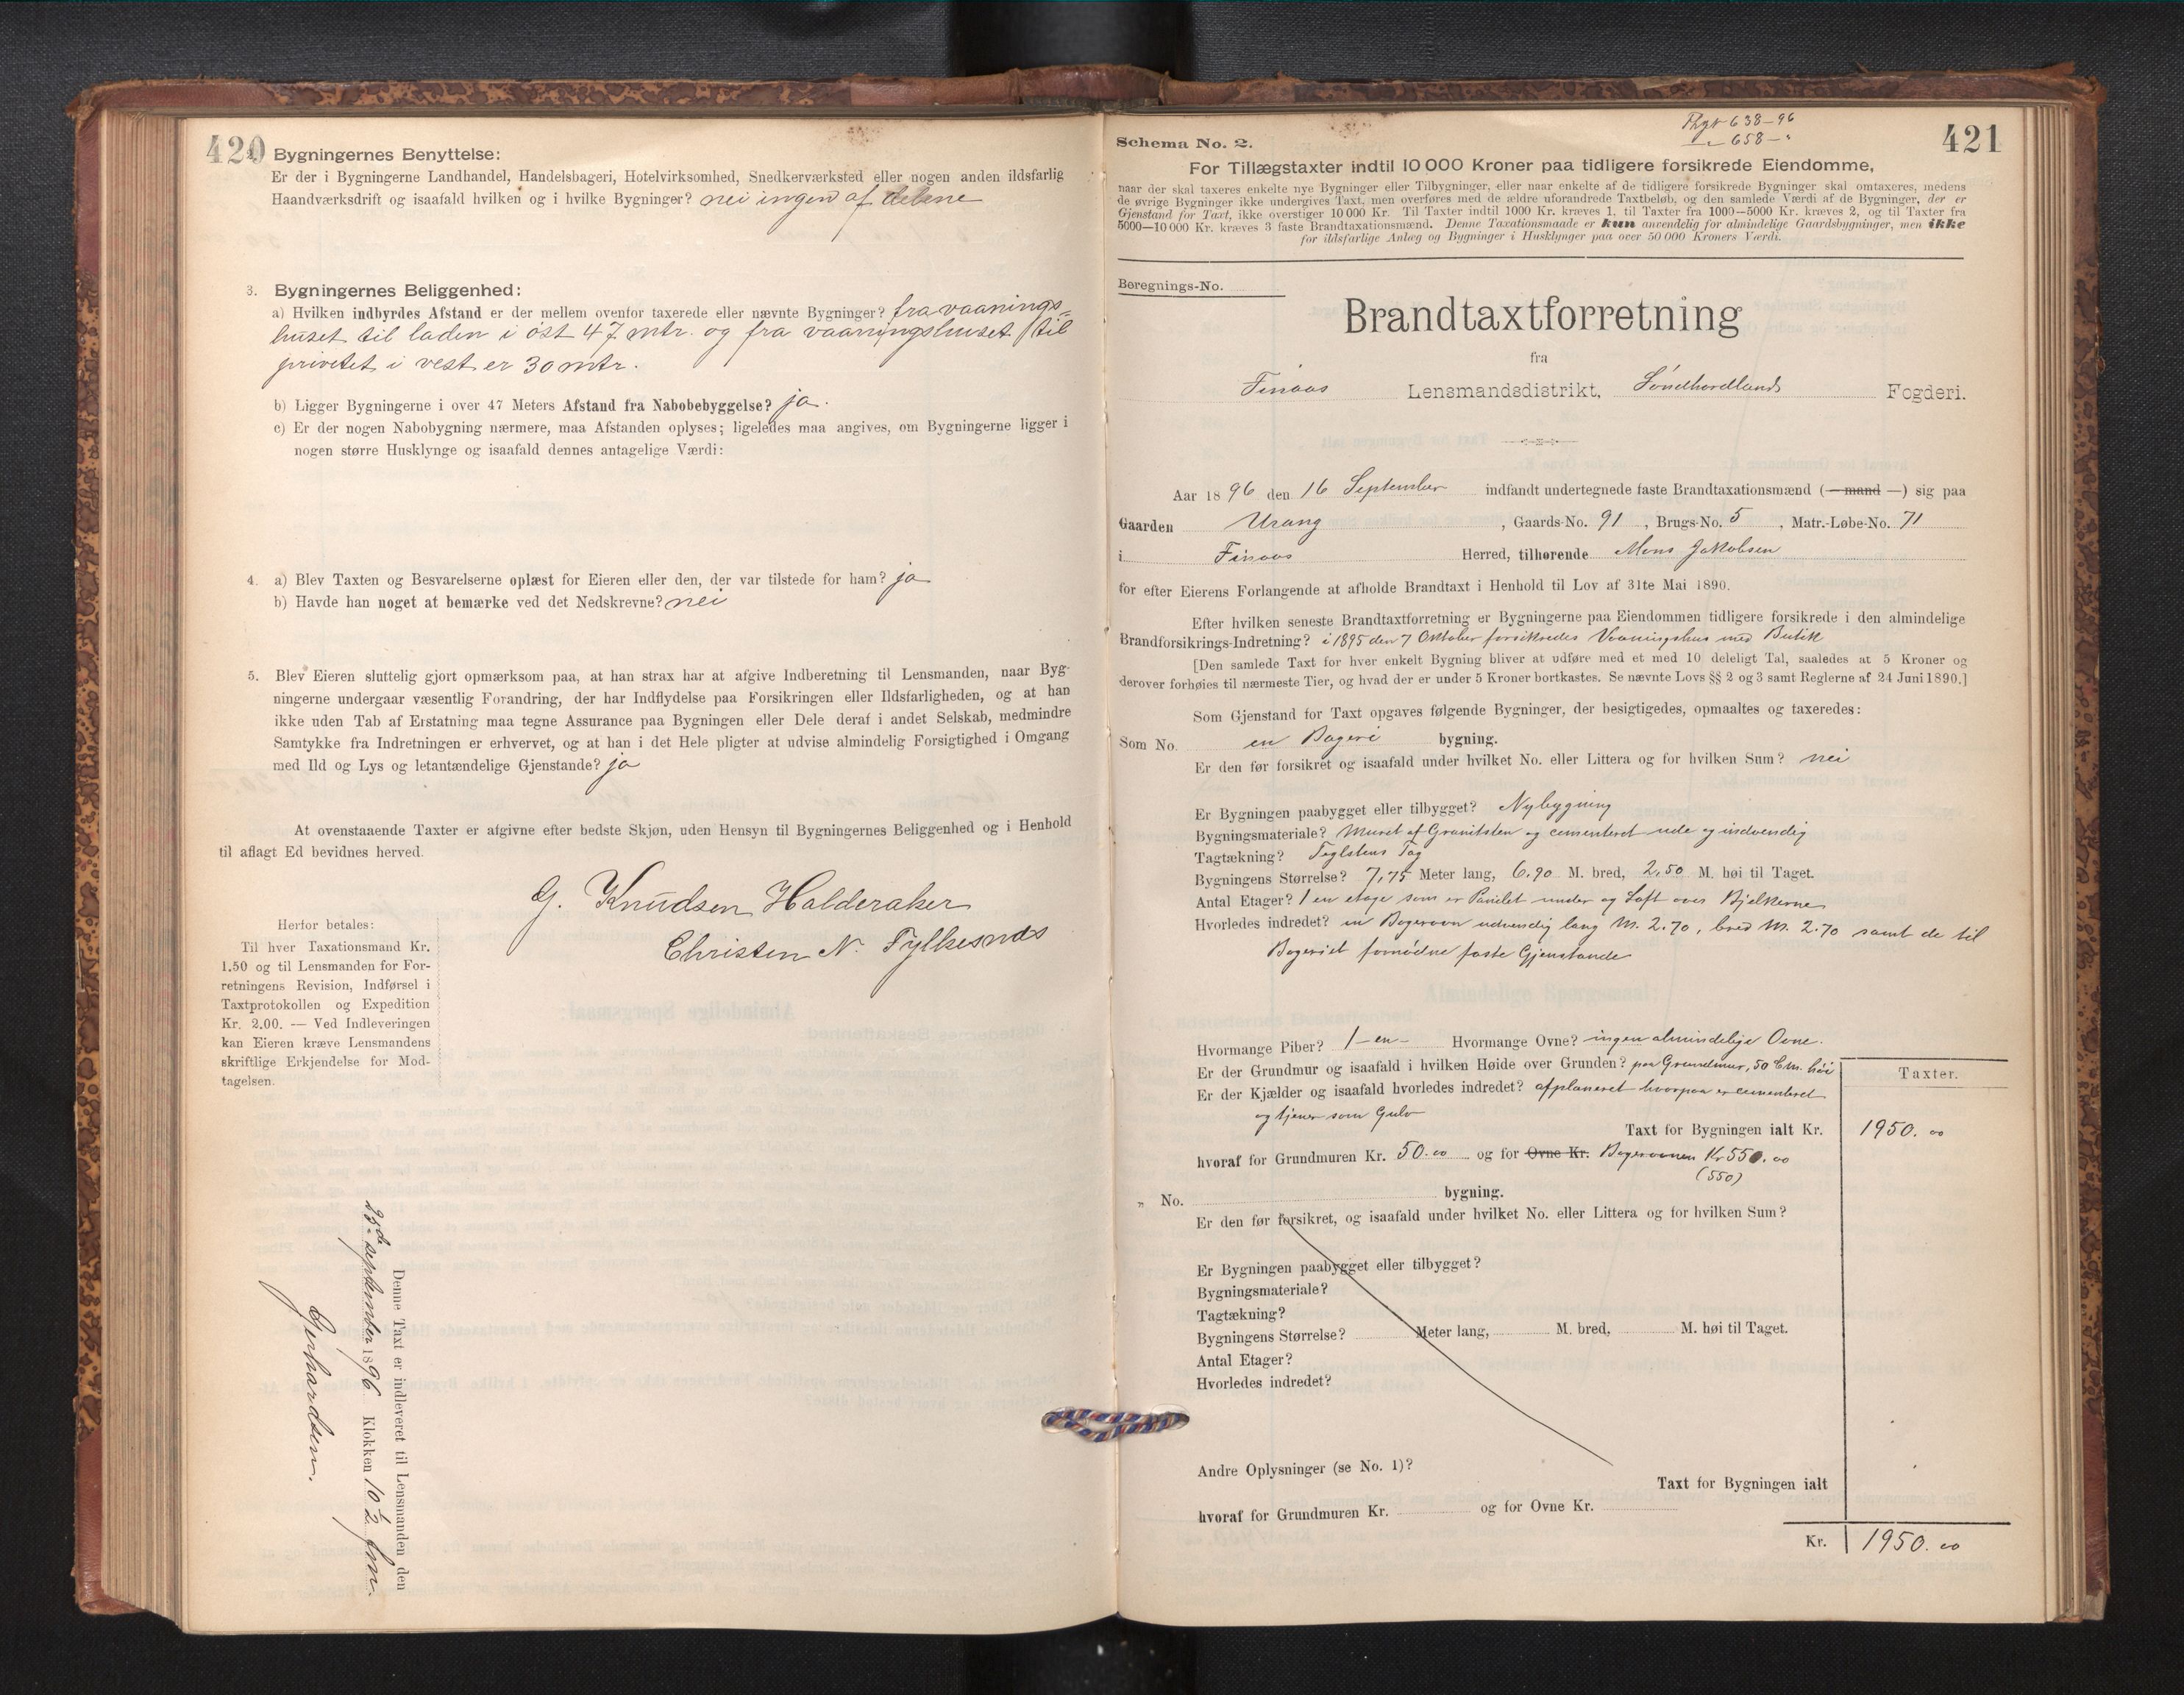 420
Bygningernes Benyttelse:
Er der i Bygningerne Landhandel, Handelsbageri, Hotelvirksomhed, Snedkerværksted eller nogen anden ildsfarlig
Haandværksdrift og isaafald hvilken og i hvilke Bygninger? nei ingen af delene
3. Bygningernes Beliggenhed:
a) Hvilken indbyrdes Afstand er der mellem ovenfor taxerede eller nævnte Bygninger? fra vaanings-
huset til laden i øst 47 mtr. og fra vaaningshuset til
privetet i vest er 30 mtr.
b) Ligger Bygningerne i over 47 Meters Afstand fra Nabobebyggelse? ja.
c) Er der nogen Nabobygning nærmere, maa Afstanden oplyses; ligeledes maa angives, om Bygningerne ligger i
nogen større Husklynge og isaafald dennes antagelige Værdi:
4. a) Blev Taxten og Besvarelserne oplæst for Eieren eller den, der var tilstede for ham? ja
b) Havde han noget at bemærke ved det Nedskrevne? nei
5. Blev Eieren sluttelig gjort opmærksom paa, at han strax har at afgive Indberetning til Lensmanden, naar Byg-
ningerne undergaar væsentlig Forandring, der har Indflydelse paa Forsikringen eller Ildsfarligheden, og at han
ikke uden Tab af Erstatning maa tegne Assurance paa Bygningen eller Dele deraf i andet Selskab, medmindre
Samtykke fra Indretningen er erhvervet, og at han i det Hele pligter at udvise almindelig Forsigtighed i Omgang
med Ild og Lys og letantændelige Gjenstande? ja
At ovenstaaende Taxter er afgivne efter bedste Skjøn, uden Hensyn til Bygningernes Beliggenhed og i Henhold
til aflagt Ed bevidnes herved.
G. Knudsen Halderaker
Christen N. Fylkesnæs
Herfor betales:
Til hver Taxationsmand Kr.
1.50 og til Lensmanden for For-
retningens Revision, Indførsel i
Taxtprotokollen og Expedition
Kr. 2.00. — Ved Indleveringen
kan Eieren kræve Lensmandens
skriftlige Erkjendelse for Mod-
tagelsen.
Denne Taxt er indleveret til Lensmanden den
25de september 1896 Klokken 10 1/2 fm.
Gerhardsen.
638-96
658-"
421
Schema No. 2.
For Tillægstaxter indtil 10 000 Kroner paa tidligere forsikrede Eiendomme,
naar der skal taxeres enkelte nye Bygninger eller Tilbygninger, eller naar enkelte af de tidligere forsikrede Bygninger skal omtaxeres, medens
de øvrige Bygninger ikke undergives Taxt, men overføres med de ældre uforandrede Taxtbeløb, og den samlede Værdi af de Bygninger, der er
Gjenstand for Taxt, ikke overstiger 10 000 Kr. Til Taxter indtil 1000 Kr. kræves 1, til Taxter fra 1000—5000 Kr. kræves 2, og til Taxter fra
5000—10 000 Kr. kræves 3 faste Brandtaxationsmænd. Denne Taxationsmaade er kun anvendelig for almindelige Gaardsbygninger, men ikke
for ildsfarlige Anlæg og Bygninger i Husklynger paa over 50 000 Kroners Værdi.
Beregnings-No.
Brandtaxtforretning
fra
Finaas Lensmandsdistrikt, Søndhordlands Fogderi.
Aar 1896 den 16 September indfandt undertegnede faste Brandtaxationsmænd (— mand —) sig paa
Gaarden Urang, Gaards-No. 91, Brugs-No. 5, Matr.-Løbe-No. 71
i Finaas Herred, tilhørende Mons Jakobsen
for efter Eierens Forlangende at afholde Brandtaxt i Henhold til Lov af 31te Mai 1890.
Efter hvilken seneste Brandtaxtforretning er Bygningerne paa Eiendommen tidligere forsikrede i den almindelige
Brandforsikrings-Indretning? i 1895 den 7 Oktober forsikredes Vaaningshus med Butik
[Den samlede Taxt for hver enkelt Bygning bliver at udføre med et med 10 deleligt Tal, saaledes at 5 Kroner og
derover forhøies til nærmeste Tier, og hvad der er under 5 Kroner bortkastes. Se nævnte Lovs §§ 2 og 3 samt Reglerne af 24 Juni 1890.]
Som Gjenstand for Taxt opgaves følgende Bygninger, der besigtigedes, opmaaltes og taxeredes:
Som No. en Bageri bygning.
Er den før forsikret og isaafald under hvilket No. eller Littera og for hvilken Sum? nei
Er Bygningen paabygget eller tilbygget? Nybygning
Bygningsmateriale? Muret af Granitsten og cementeret ude og indvendig
Tagtækning? Teglstens Tag
Bygningens Størrelse? 7,75 Meter lang, 6,90 M. bred, 2,50 M. høi til Taget.
Antal Etager? 1 en etage som er Panelet under og Loft over Bjelkerne
Hvorledes indredet? en Bagerovn udvendig lang M. 2.70, bred M. 2.70 samt de til
Bageriet fornødne faste Gjenstande
Hvormange Piber? 1 - en - Hvormange Ovne? ingen almindelige Ovne.
Er der Grundmur og isaafald i hvilken Høide over Grunden? paa Grundmur, 50 Ctm. høi
Er der Kjælder og isaafald hvorledes indredet? afplaneret hvorpaa er cementeret
og tjener som Gulv
Taxter.
Taxt for Bygningen ialt Kr. 1950.00
hvoraf for Grundmuren Kr. 50.00 og for Ovne Kr. Bagerovnen Kr 550.00
(550)
" No. bygning.
Er den før forsikret, og isaafald under hvilket No. eller Littera og for hvilken Sum?
Er Bygningen paabygget eller tilbygget?
Bygningsmateriale?
Tagtækning?
Bygningens Størrelse? Meter lang, M. bred, M. høi til Taget.
Antal Etager?
Hvorledes indredet?
Andre Oplysninger (se No. 1)?
Taxt for Bygningen ialt
hvoraf for Grundmuren Kr. og for Ovne Kr.
Kr. 1950.00